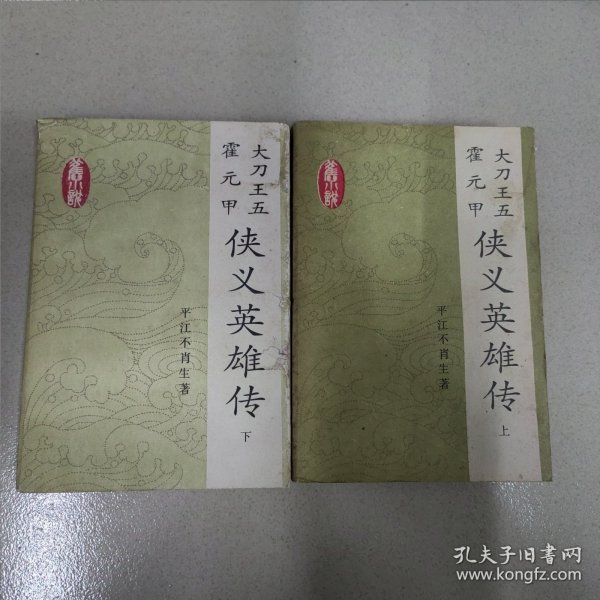 旧小说
大刀王五
霍元甲
侠义英雄传
下
平江不肖生著
旧小说
大刀王五
霍元甲
侠义英雄传
上
平江不肖生著
孔夫子旧书网
www.kongfz.com